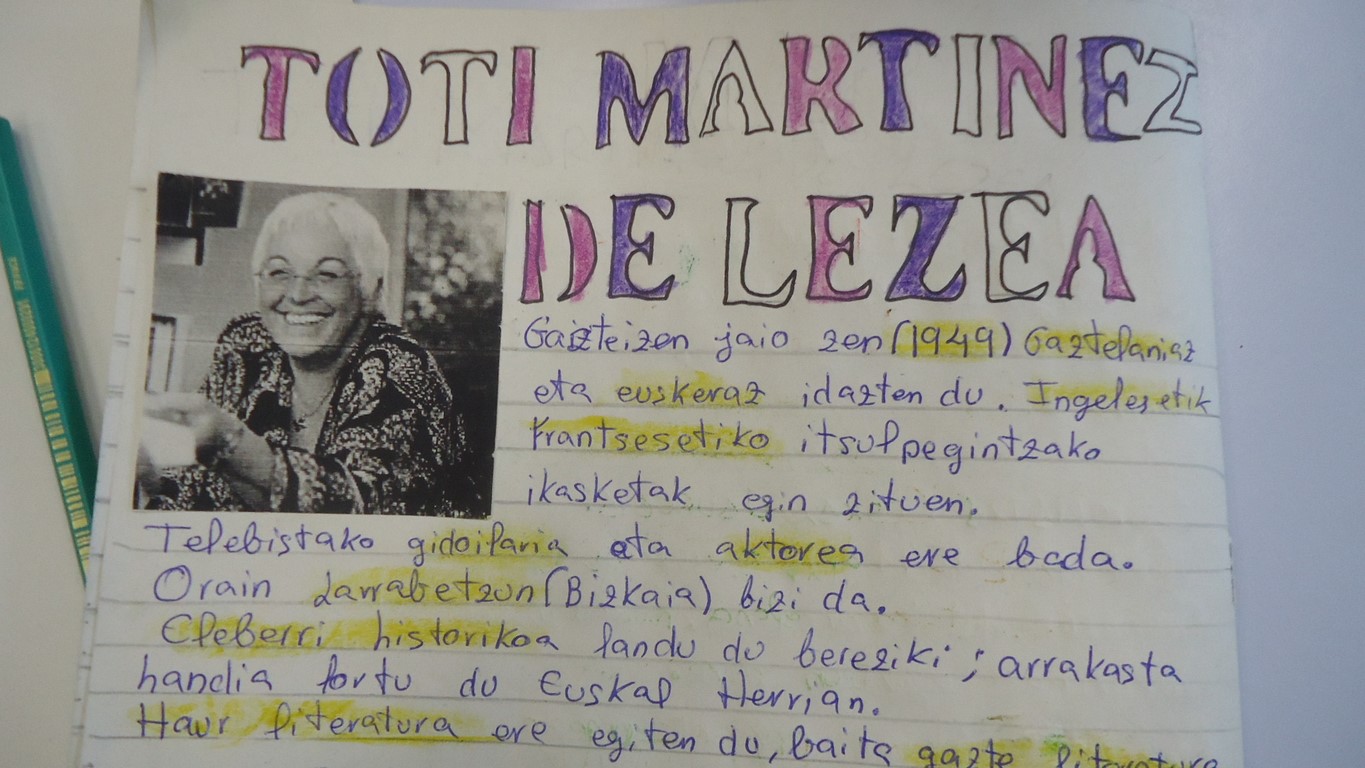 TOTI MARTINEZ
DE LEZEA
Gazteizen jaio zen (1949) Gaztelaniaz
eta euskeraz idazten du. Ingelesetik
Frantsesetiko itsulpegintzako
ikasketak egin zituen.
Telebistako gidoilaria eta aktorea ere bada.
Orain Larrabetzun (Bizkaia) bizi da.
Eleberri historikoa landu du bereziki; arrakasta
handia lortu du Euskal Herrian.
Haur literatura ere egiten du, baita gazte literatura